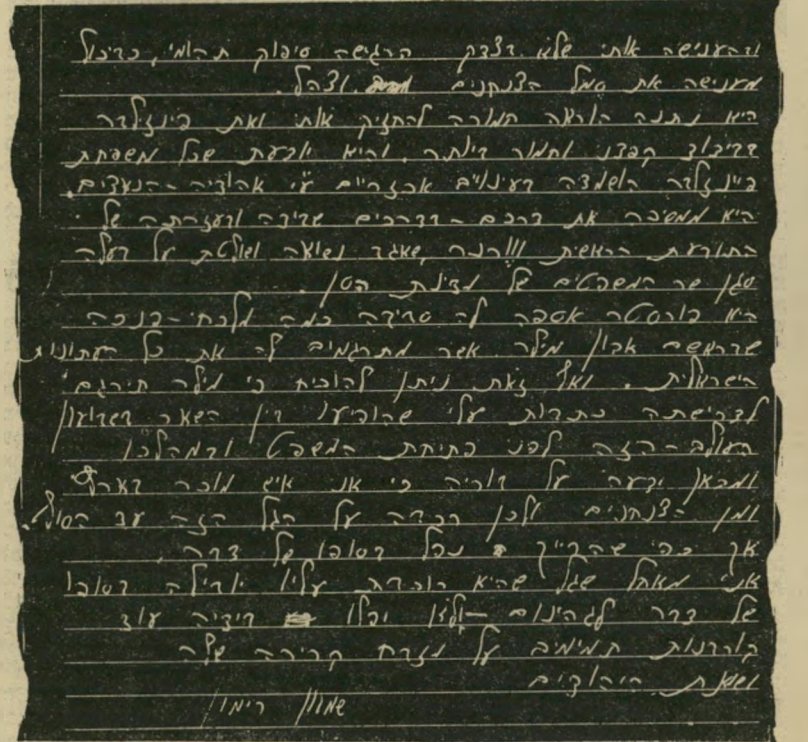 והענישה אותי שלא בצדק הרגישה סיפוק תהומי, כביכול
מענישה את סמל הצנחנים וצהל.
היא נתנה הוראה חמורה להחזיק אותי ואת
בבידוד קפדני וחמור ביותר. והיא יודעת שכל משפחת
הושמדה בעינויים אכזריים ע״י אהוביה - הנאצים.
היא ממשיכה את דרכם - בדרכים שבידה ובעזרתה של
התובעת הראשית !!! שאגב נשואה ושולטת על בעלה
סגן שר המשפטים של מדינת הסן.
היא אספה לה סביבה כמה מלחכי-פנכה
שבראשם מילר אשר מתרגמים לה את כל העתונות
הישראלית. ואף זאת ניתן להוכיח כי מילר תירגם
לבקישתה כתבות עלי שהופיעו בין השאר בשבועון
העולם-הזה לפני פתיחת המשפט ובמהלכו
ומכאן ידעה על בוריה כי אני איש מוכר בארץ
ומן הצנחנים ולכן רכבה על הגל הזה עד הסוף.
אך כפי שהקייק נפל בסופו של דבר,
אני מאחל שגל שהיא רוכבת עליו יובילה בסופו
של דבר לגהינום ובידיה עוד
קורבנות תמימים על מזבח קריירה שלה
ושנאת היהודים
שמעון רימון